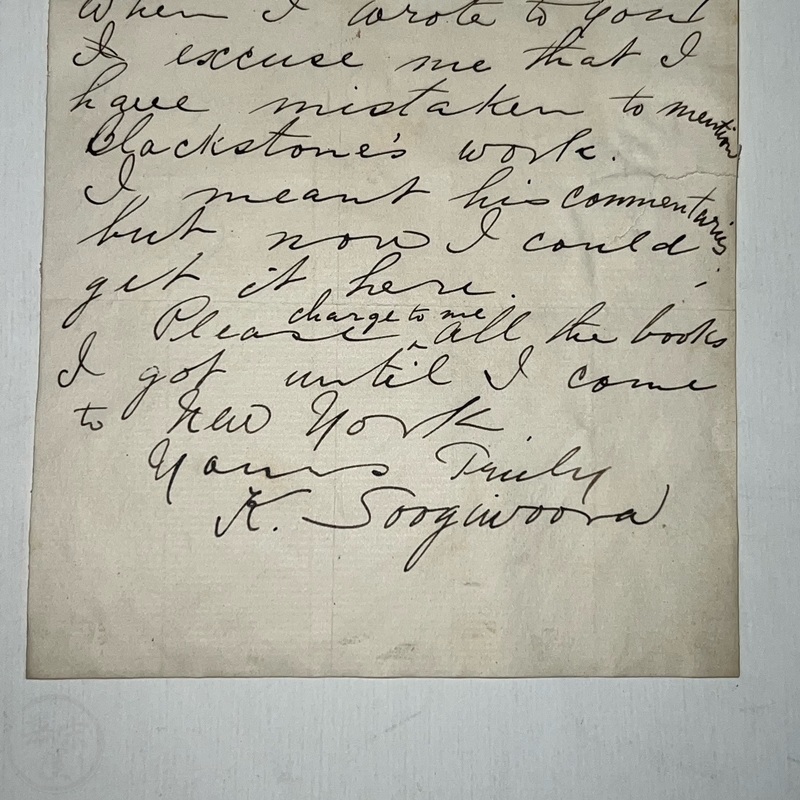 When I wrote to you
I excuse me that I
have mistaken to mention
Blackstone's work.
I meant his commentaries
but now I could
get it here.
Please charge to me all the books
I got until I come
to New York
Yours Truly
K. Soogiwoora